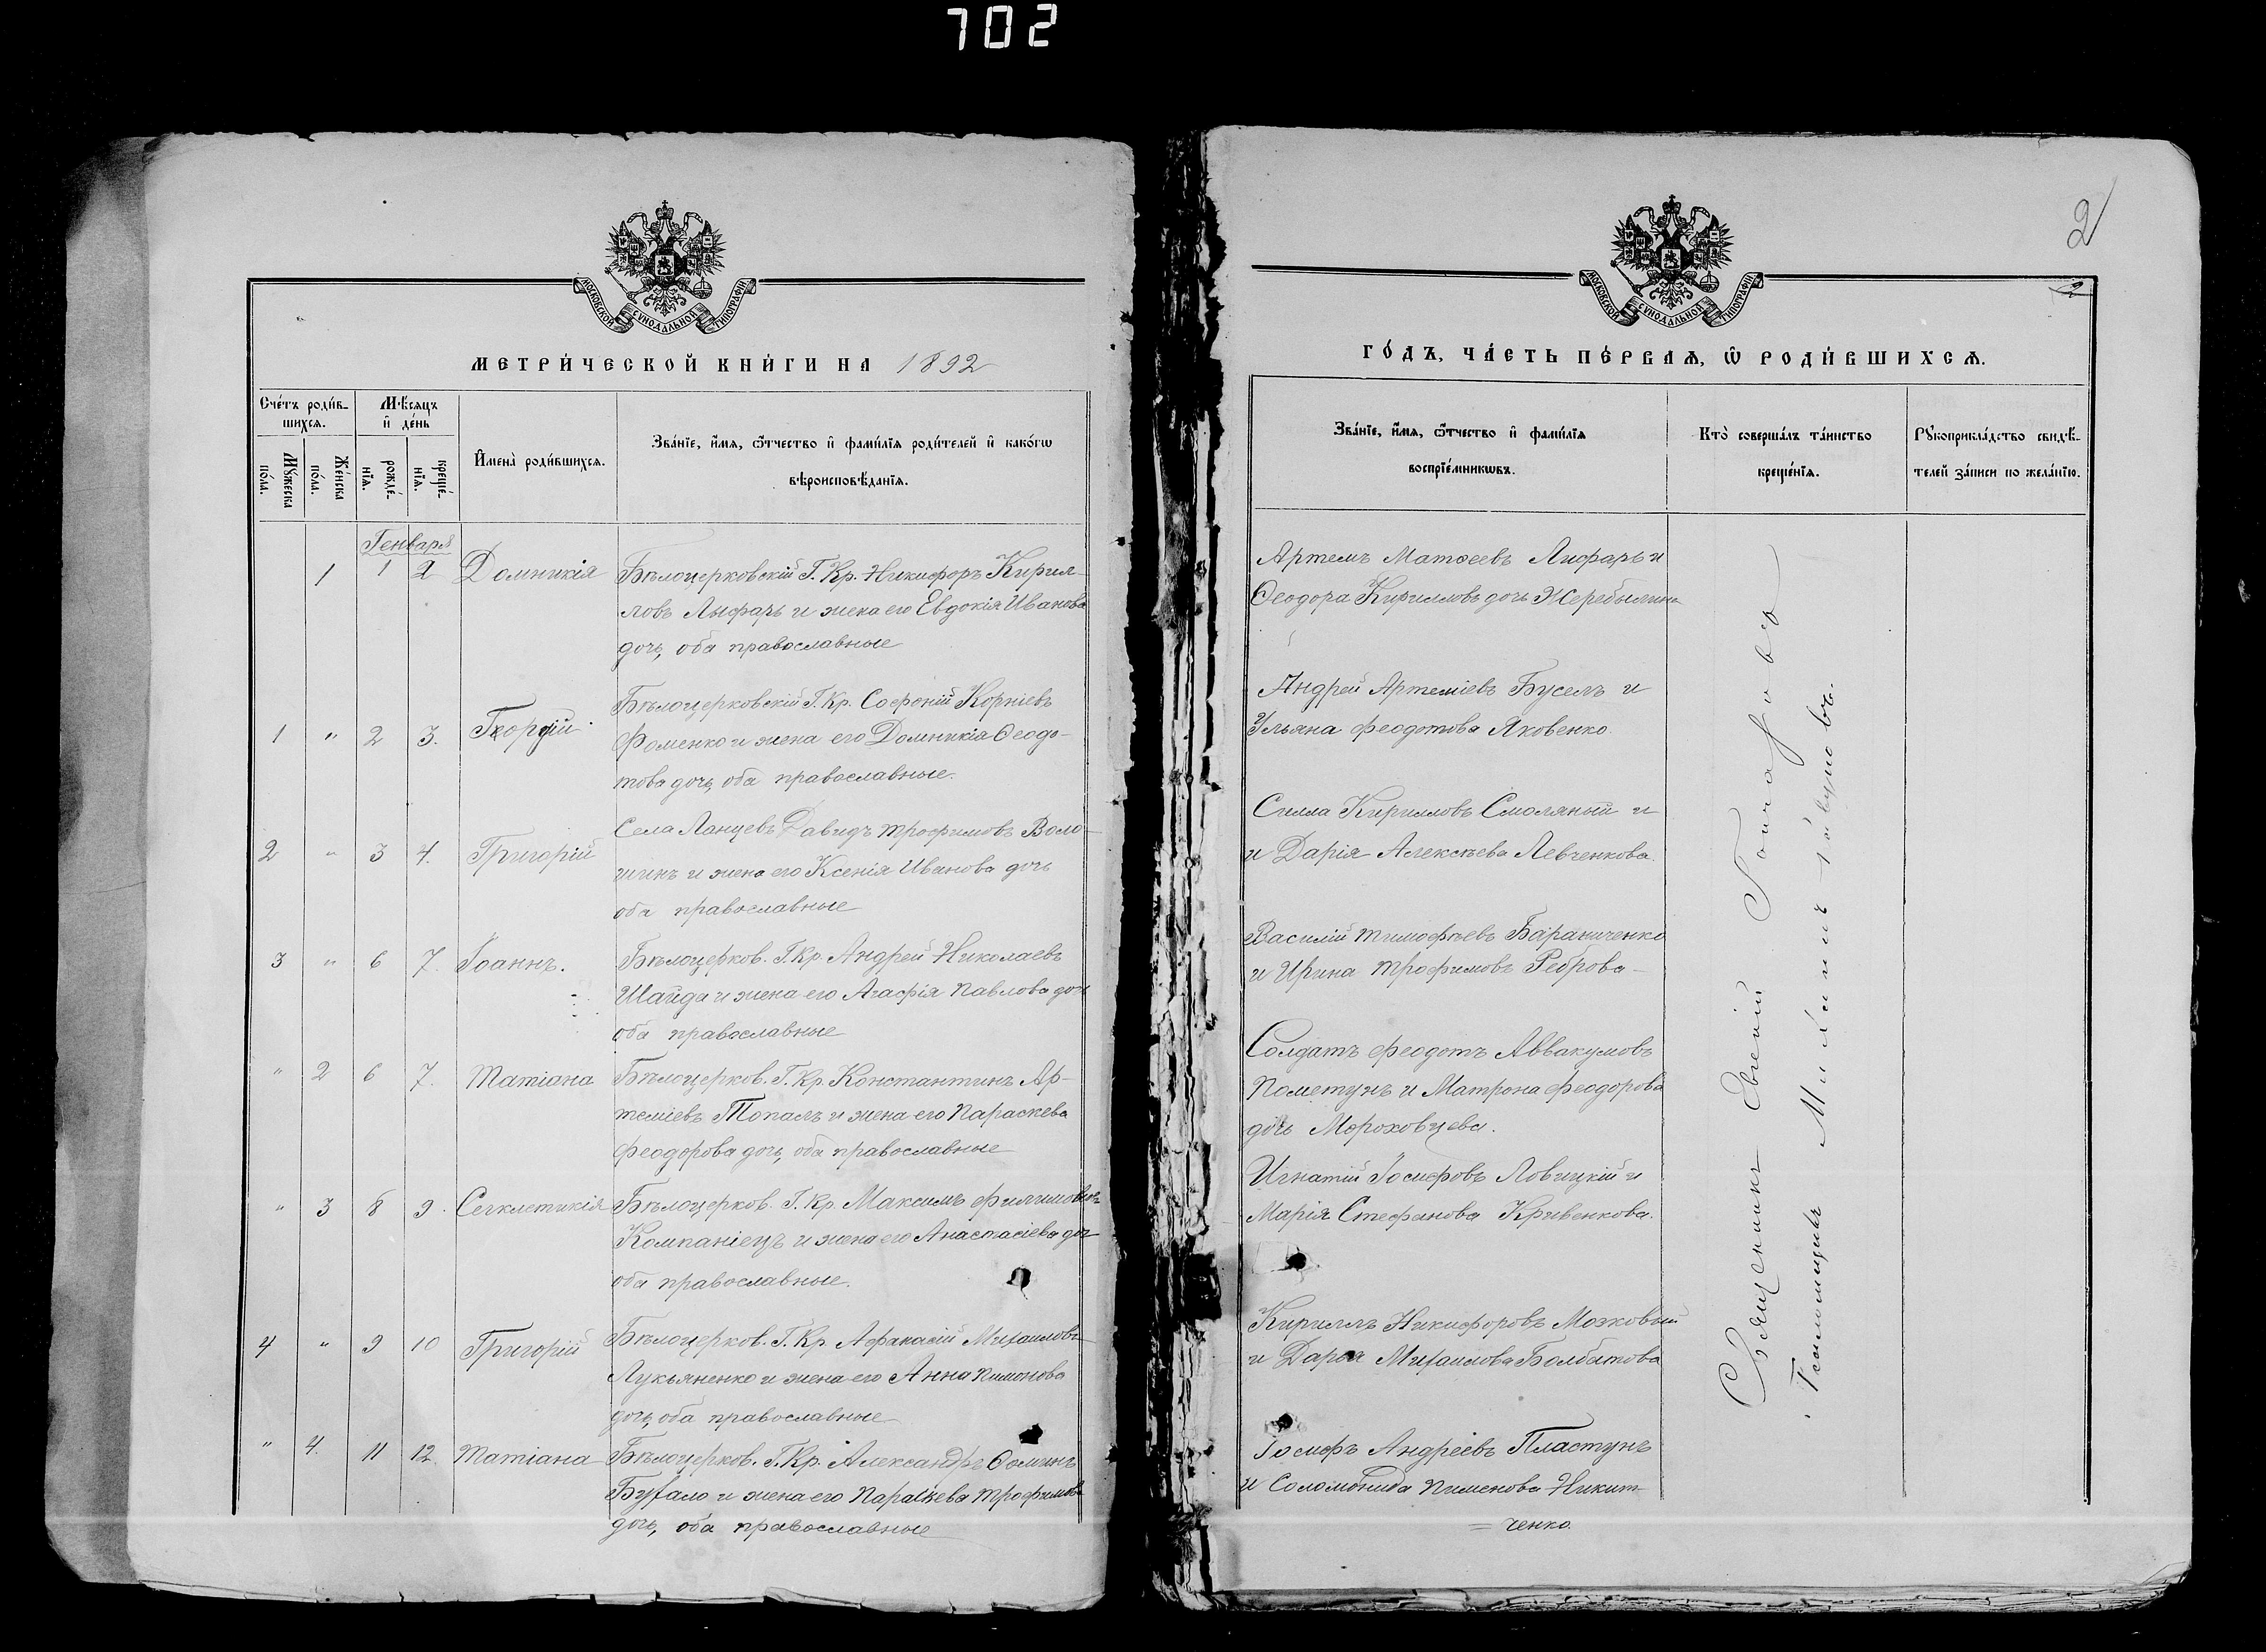 702
МОСКОВСКОЙ СУНОДАЛЬНОЙ ТИПОГРАФІИ
МЕТРИ́ЧЕСКОЙ КНИ́ГИ НА 1892
Сче́тъ роди́в-
шихсѧ.
Мѣ́сяцъ
и҆ де́нь
И҆мена̀ роди́вшихсѧ.
Зва́нїе, и҆́мѧ, ѻ҆́тчество и҆ фами́лїѧ роди́телей и҆ како́гѡ
вѣроисповѣ́данїѧ.
Мꙋ́жеска
по́ла.
Же́нска
по́ла.
рожде́-
нїѧ.
креще́-
нїѧ.
Генваря
1 1 2 Домникія Бѣлоцерковскій Г. Кр. Никифоръ Кирил-
ловъ Лыфарь и жена его Евдокія Иванова
дочь, оба православные
1 " 2 3. Георгій Бѣлоцерковскій Г. Кр. Софроній Корніевъ
Фоменко и жена его Домникія Ѳеодо-
това дочь, оба православные.
2 " 3 4. Григорій Села Ланцевъ Давидъ Трофимовъ Воло-
шинъ и жена его Ксенія Иванова дочь
оба православные
3 " 6 7. Іоаннъ. Бѣлоцерков. Г. Кр. Андрей Николаевъ
Шайда и жена его Агафія Павлова дочь
оба православные
" 2 6 7. Татіана Бѣлоцерков. Г. Кр. Константинъ Ар-
теміевъ Топалъ и жена его Параскева
Феодорова дочь, оба православные
" 3 8 9. Сегклетикія Бѣлоцерков. Г. Кр. Максимъ
Компаніецъ и жена его Анастасіева доч
оба православные.
4 " 9 10 Григорій Бѣлоцерков. Г. Кр. Афанасій Михаиловъ
Лукьяненко и жена его Анна Пимонова
дочь, оба православные
" 4. 11 12. Татіана Бѣлоцерков. Г. Кр. Александръ Ѳоминъ
Бухало и жена его Параскева Трофимова
дочь, оба православные
2
2
МОСКОВСКОЙ СУНОДАЛЬНОЙ ТИПОГРАФІИ
ГО́ДЪ, ЧА́СТЬ ПЕ́РВАѦ, Ѡ҆ РОДИ́ВШИХСѦ.
Зва́нїе, и҆́мѧ, ѻ҆́тчество и҆ фами́лїѧ
воспрїе́мникѡвъ.
Кто̀ соверша́лъ та́инство
креще́нїѧ.
Рꙋкоприкла́дство свидѣ́-
телей за́писи по жела́нїю.
Артемъ Матѳеевъ Лифарь и
Ѳеодора Кириллова дочь Жеребылина
Андрей Артеміевъ Буселъ и
Ульяна Феодотова Яковенко.
Силла Кирилловъ Смоляный и
и Дарія Алексѣева Левченкова.
Василій Тимофѣевъ Бараниченко
и Ирина Трофимовъ Реброва
Солдатъ Феодотъ Аввакумовъ
Пометунъ и Матрона Феодорова
дочь Мороховцева.
Игнатій Іосифовъ Ловицкій и
Марія Стефанова Кривенкова.
Кириллъ Никифоровъ Мозковый
и Дарья Михаилова Болбатова
Іосифъ Андреевъ Пластунъ
и Соломонида Пименова Никит-
= ченко.
Священникъ Евгеній
Псаломщикъ